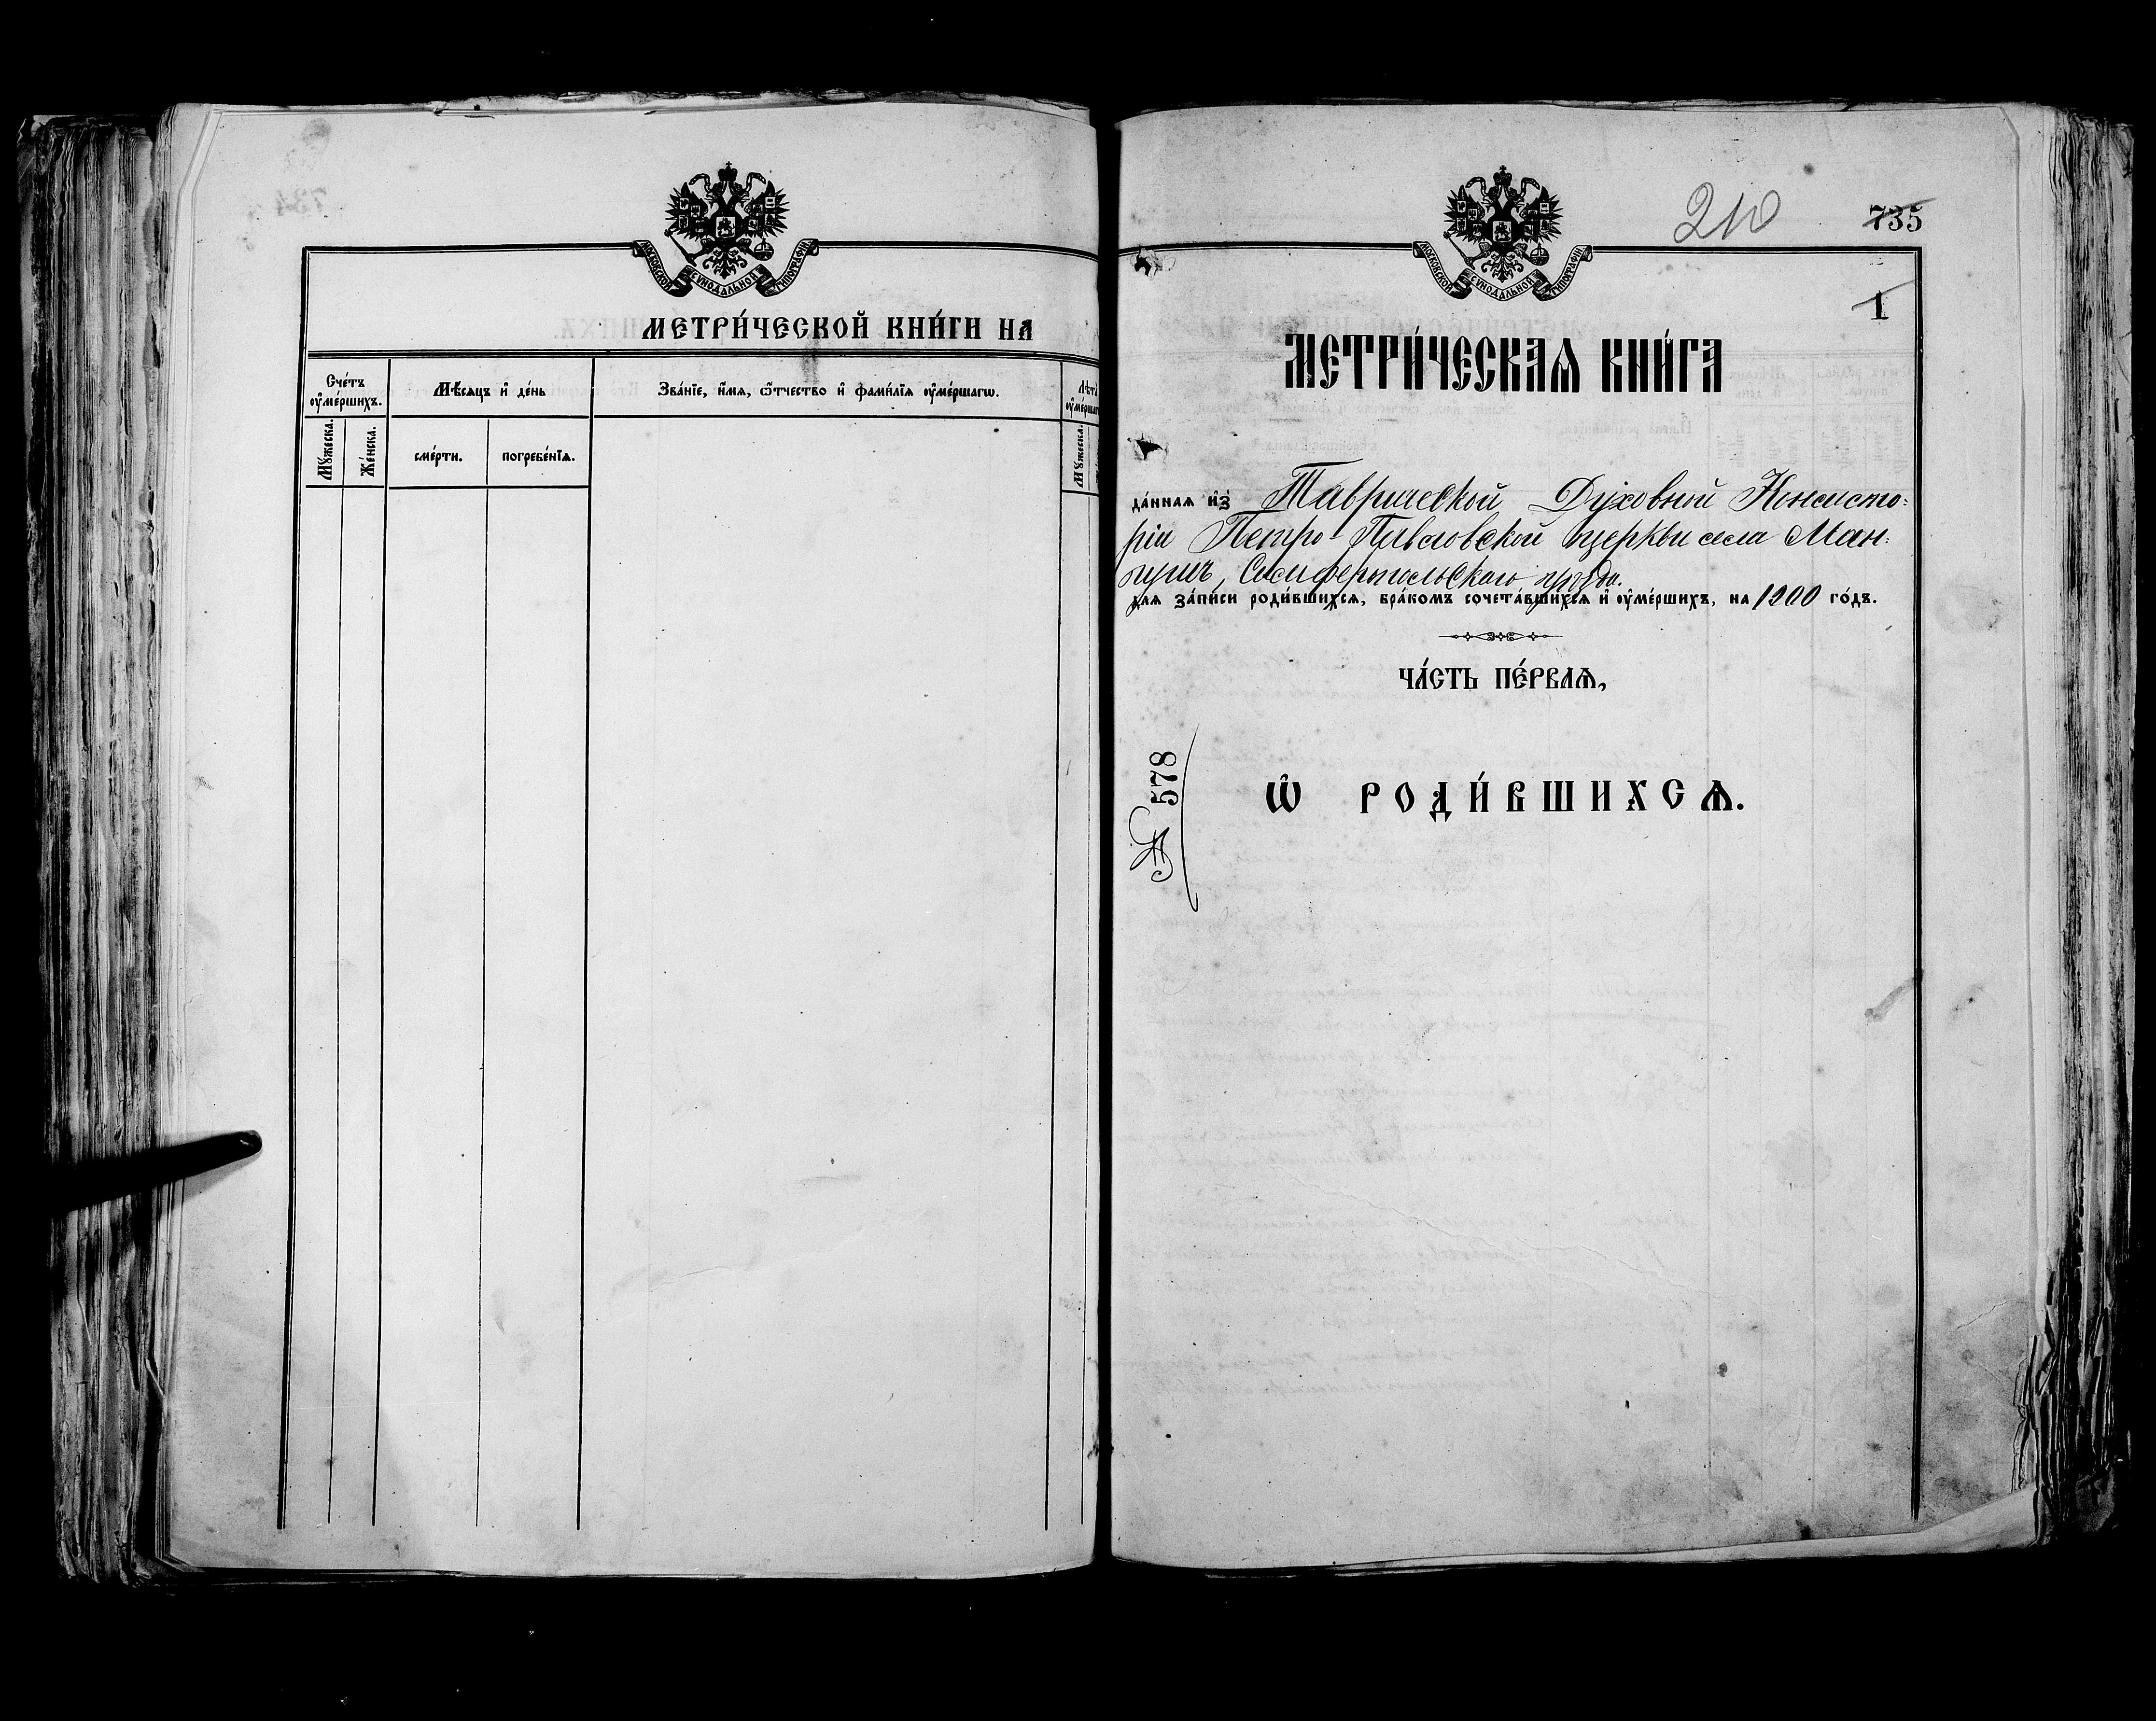 МОСКОВСКОЙ СѴНОДАЛЬНОЙ ТИПОГРАФІИ
МЕТРИ́ЧЕСКОЙ КНИ́ГИ НА
Сче́тъ ᲂу҆ме́ршихъ.
Мѣ́сяцъ и҆ де́нь
Зва́нїе, и҆́мя, ѻ҆́тчество и҆ фами́лїя ᲂу҆ме́ршагѡ.
Лѣт
ᲂу҆ме́ршаг
Мꙋ́жеска.
Же́нска.
сме́рти.
погребе́нїѧ.
Мꙋ́жеска.
210
735
МОСКОВСКОЙ СѴНОДАЛЬНОЙ ТИПОГРАФІИ
1
МЕТРИ́ЧЕСКАѦ КНИ́ГА
да́нная и҆з̾ Таврической Духовной Консисто:
ріи Петро-Павловской церкви села Ман:
гушъ, Симферопольскаго уѣзда.
для за́писи роди́вшихсѧ, бра́комъ сочета́вшихсѧ и҆ ᲂу҆ме́ршихъ, на 1900 го́дъ.
ЧА́СТЬ ПЕ́РВАѦ,
Ѡ҆ РОДИ́ВШИХСѦ.
№ 578